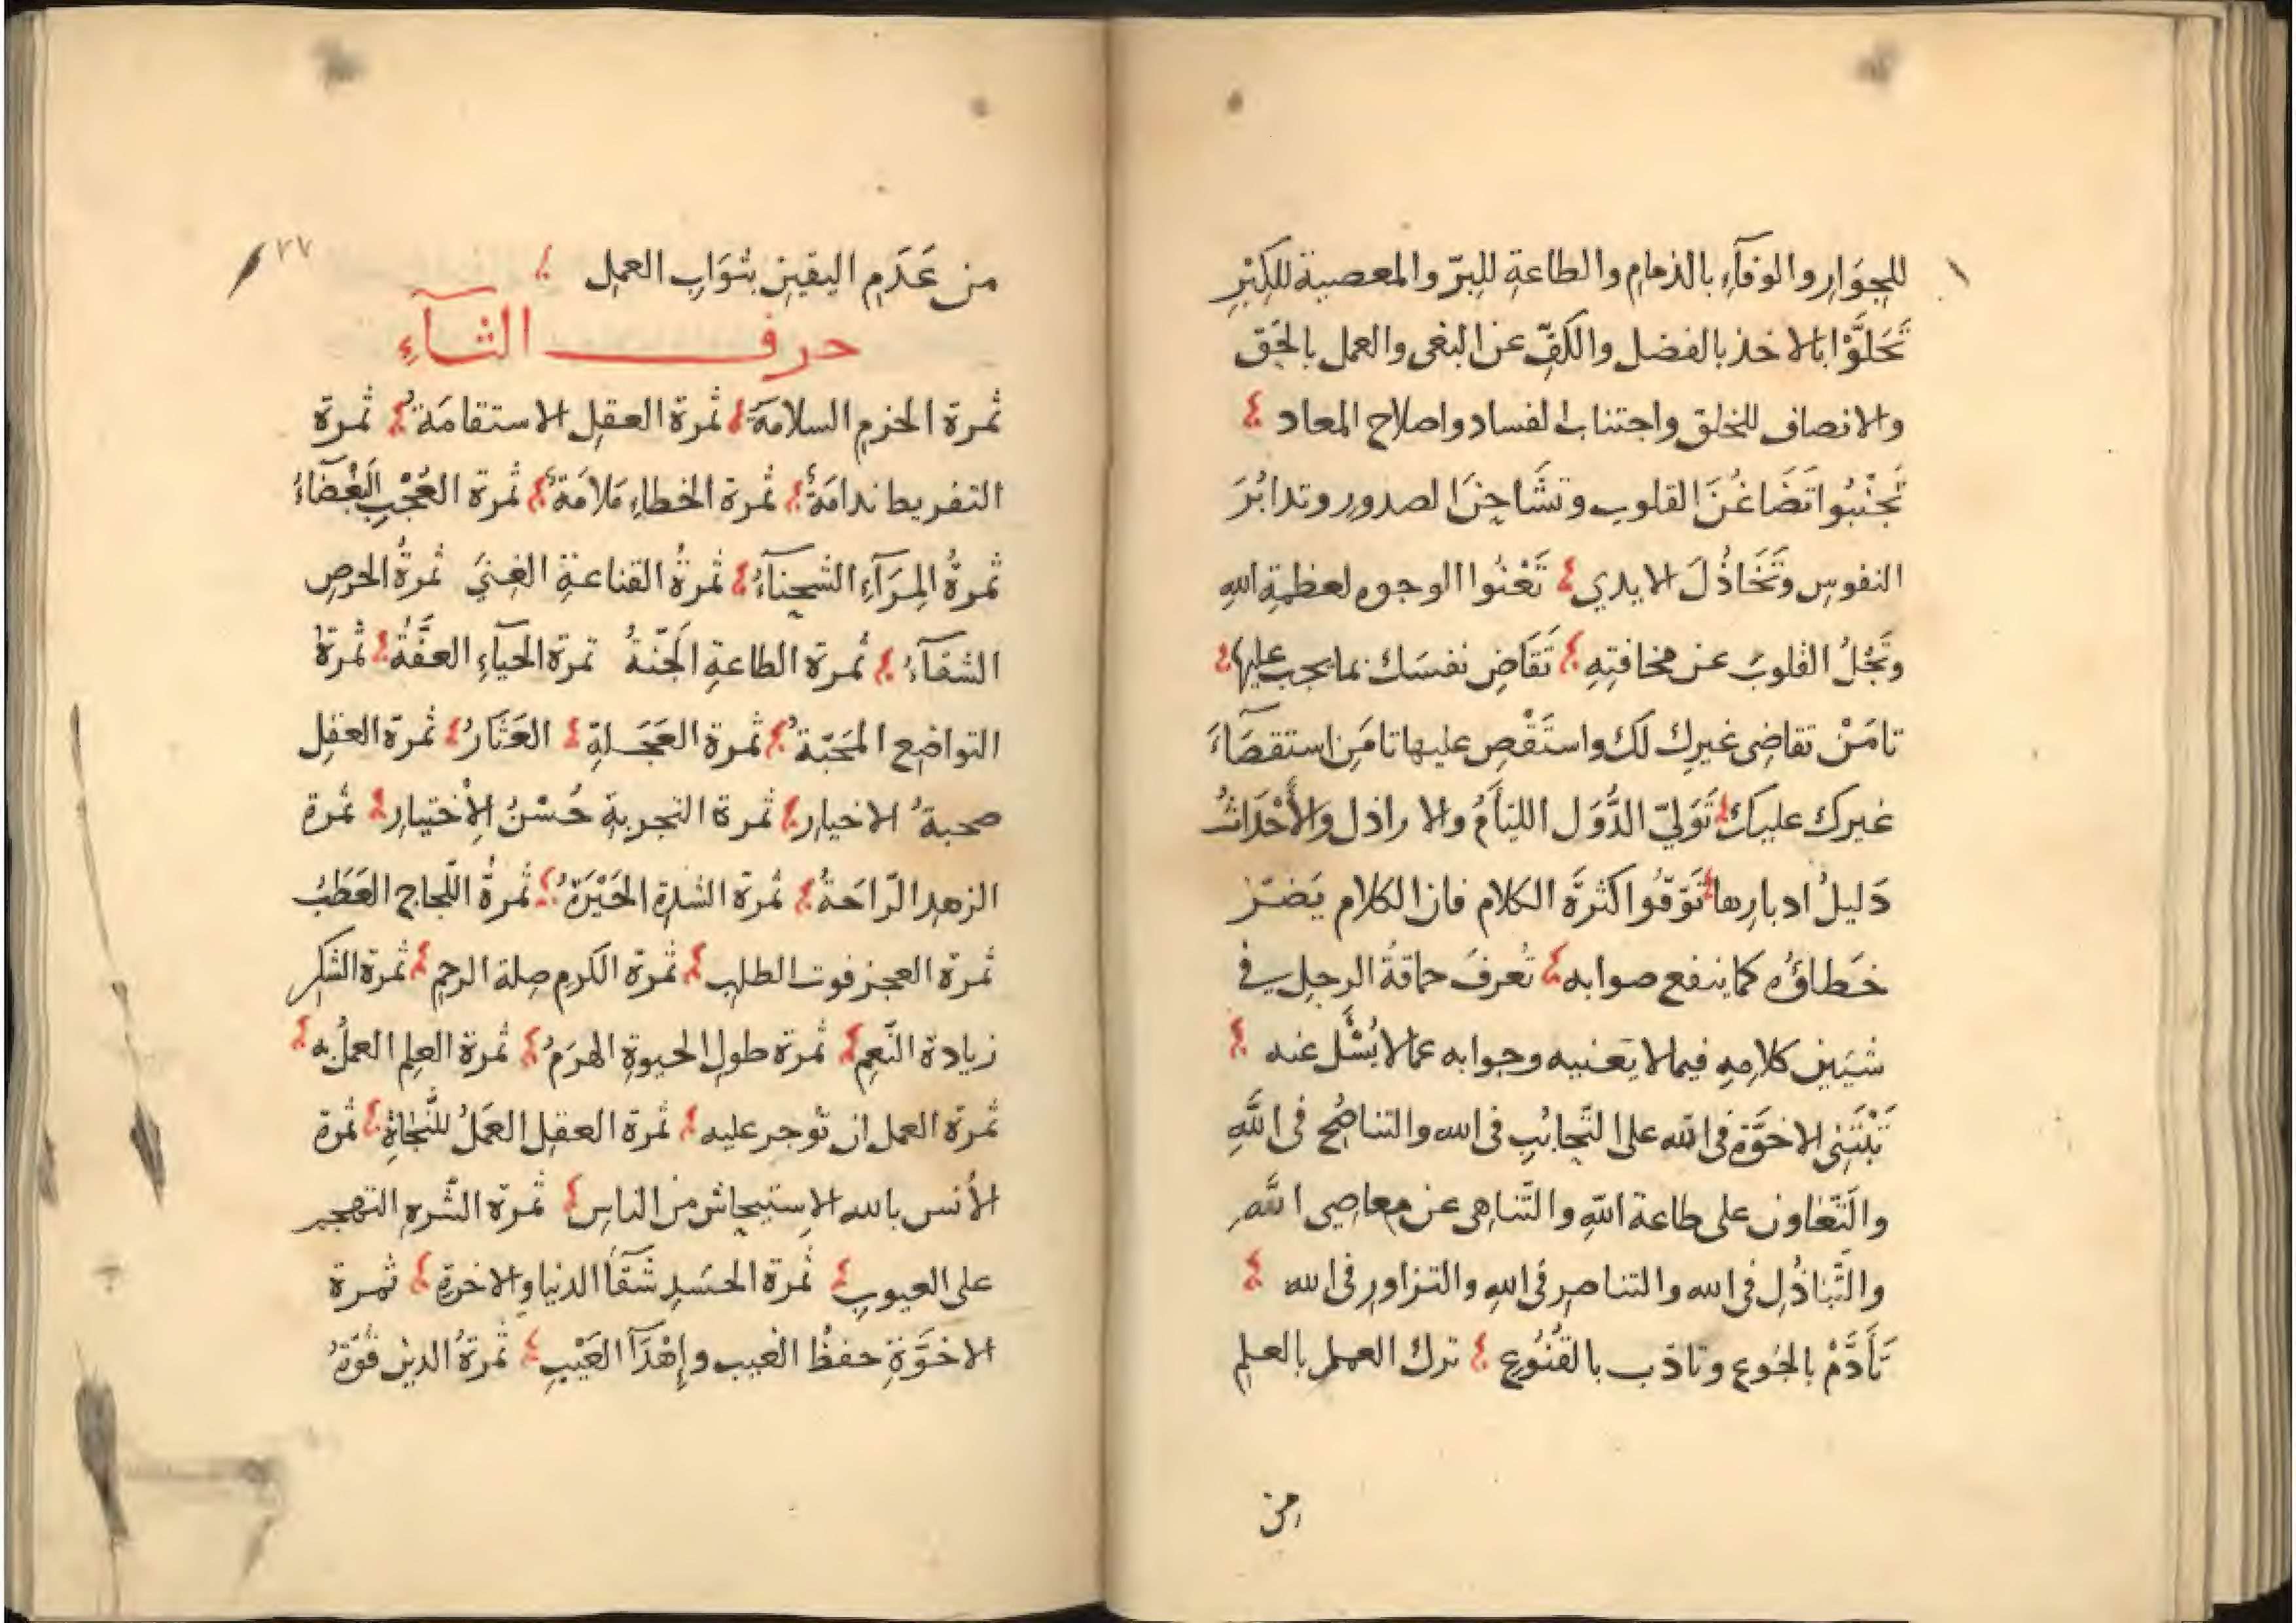 للجِوَارِ والوَفَآءِ بالذمامِ والطاعةِ للبِرّ والمعصيةِ للكِبْرِ
تَحَلَّوْا بالاخذ بالفضل والكَفِّ عن البغى والعمل بالحَق
والانصاف للخلق واجتناب الفساد واصلاح المعاد
تَجَنَّبُوا تَضَاغُنَ القلوب وتشَاحنَ الصدور وتدابُرَ
النفوس وتَخَاذُلَ الايدي تَعْنُوا الوجوه لعظمةِ اللهِ
وتَجْلُ القلوبَ عن مخافتِهِ تَقَاضِ نفسَك بما يجب عليها
تامَنْ تقاضى غيرِك لكَ واستَقْصِ عليها تامَنِ استقصَآءَ
غيرك عليك تَوَلّي الدُّوَل اللئآمُ والاراذل والأَحْدَاثُ
دَليلُ ادبارِها تَوَقّوُا كَثرةَ الكلام فان الكلام يَضرّ
خَطاؤُه كما ينفع صوابه تُعرفَ حماقةُ الرجل في
شيَين كلامِهِ فيما لا يَعنيه وجوابه عما لا يُسْئَل عنه
تَبْتَنِى الاخوَّة فى الله على التَّحابُبِ فى الله والتناصُح فى اللَّهِ
والتَّعَاون على طاعة اللّهِ والتَّناهى عن معاصِى اللَّهِ
والتَّباذُلِ فى الله والتناصر فى اللهِ والتزاورِ فى الله
تَأَدَّمْ بالجُوعِ وتادّب بالقُنُوعِ ترك العمل بالعلم
من
٢٧
من عَدَمِ اليقين بثوَابِ العمل
حرف الثآءِ
ثمرة الحزم السلامَة ثمرة العقل الاستقامَة ثمرة
التفريط ندامَةٌ ثمرة الخطاءِ مَلامَةٌ ثمرة العُجْبِ البَغْضَآءُ
ثمرةُ المِرَآءِ الشحنآءُ ثمرةُ القناعةِ الغِنىَ ثمرةُ الحرصِ
الشقآءُ ثمرة الطاعةِ الجَنّةُ ثمرة الحيَآءِ العفَّةُ ثمرة
التواضع المحَبّةُ ثمرة العَجَلةِ العَثَارُ ثمرة العقل
صحبةُ الاخيارِ ثمرة التجربةِ حُسْنُ الإختيارِ ثمرة
الزهد الرّاحَةُ ثمرة الشدة الحَيْرَةُ ثمرةُ اللّجاج العَطَبُ
ثمرة العجز فوت الطلبِ ثمرة الكَرمِ صِلة الرحِمِ ثمرة الشكر
زيادة النّعِم ثمرة طول الحيوةِ الهرَمُ ثمرة العِلم العملُ به
ثمرة العمل ان تُوجر عليه ثمرة العقل العَمَلُ للنَّجاةِ ثمرة
الأنس بالله الإستيحاش من الناسِ ثمرة الشَّره التهجير
على العيوب ثمرة الحسَدِ شَقَآ الدنيا والاخرة ثمرة
الاخوَّةِ حفظُ الغيب وإهْدَآ العَيْبِ ثمرةُ الدين قُوّةُ